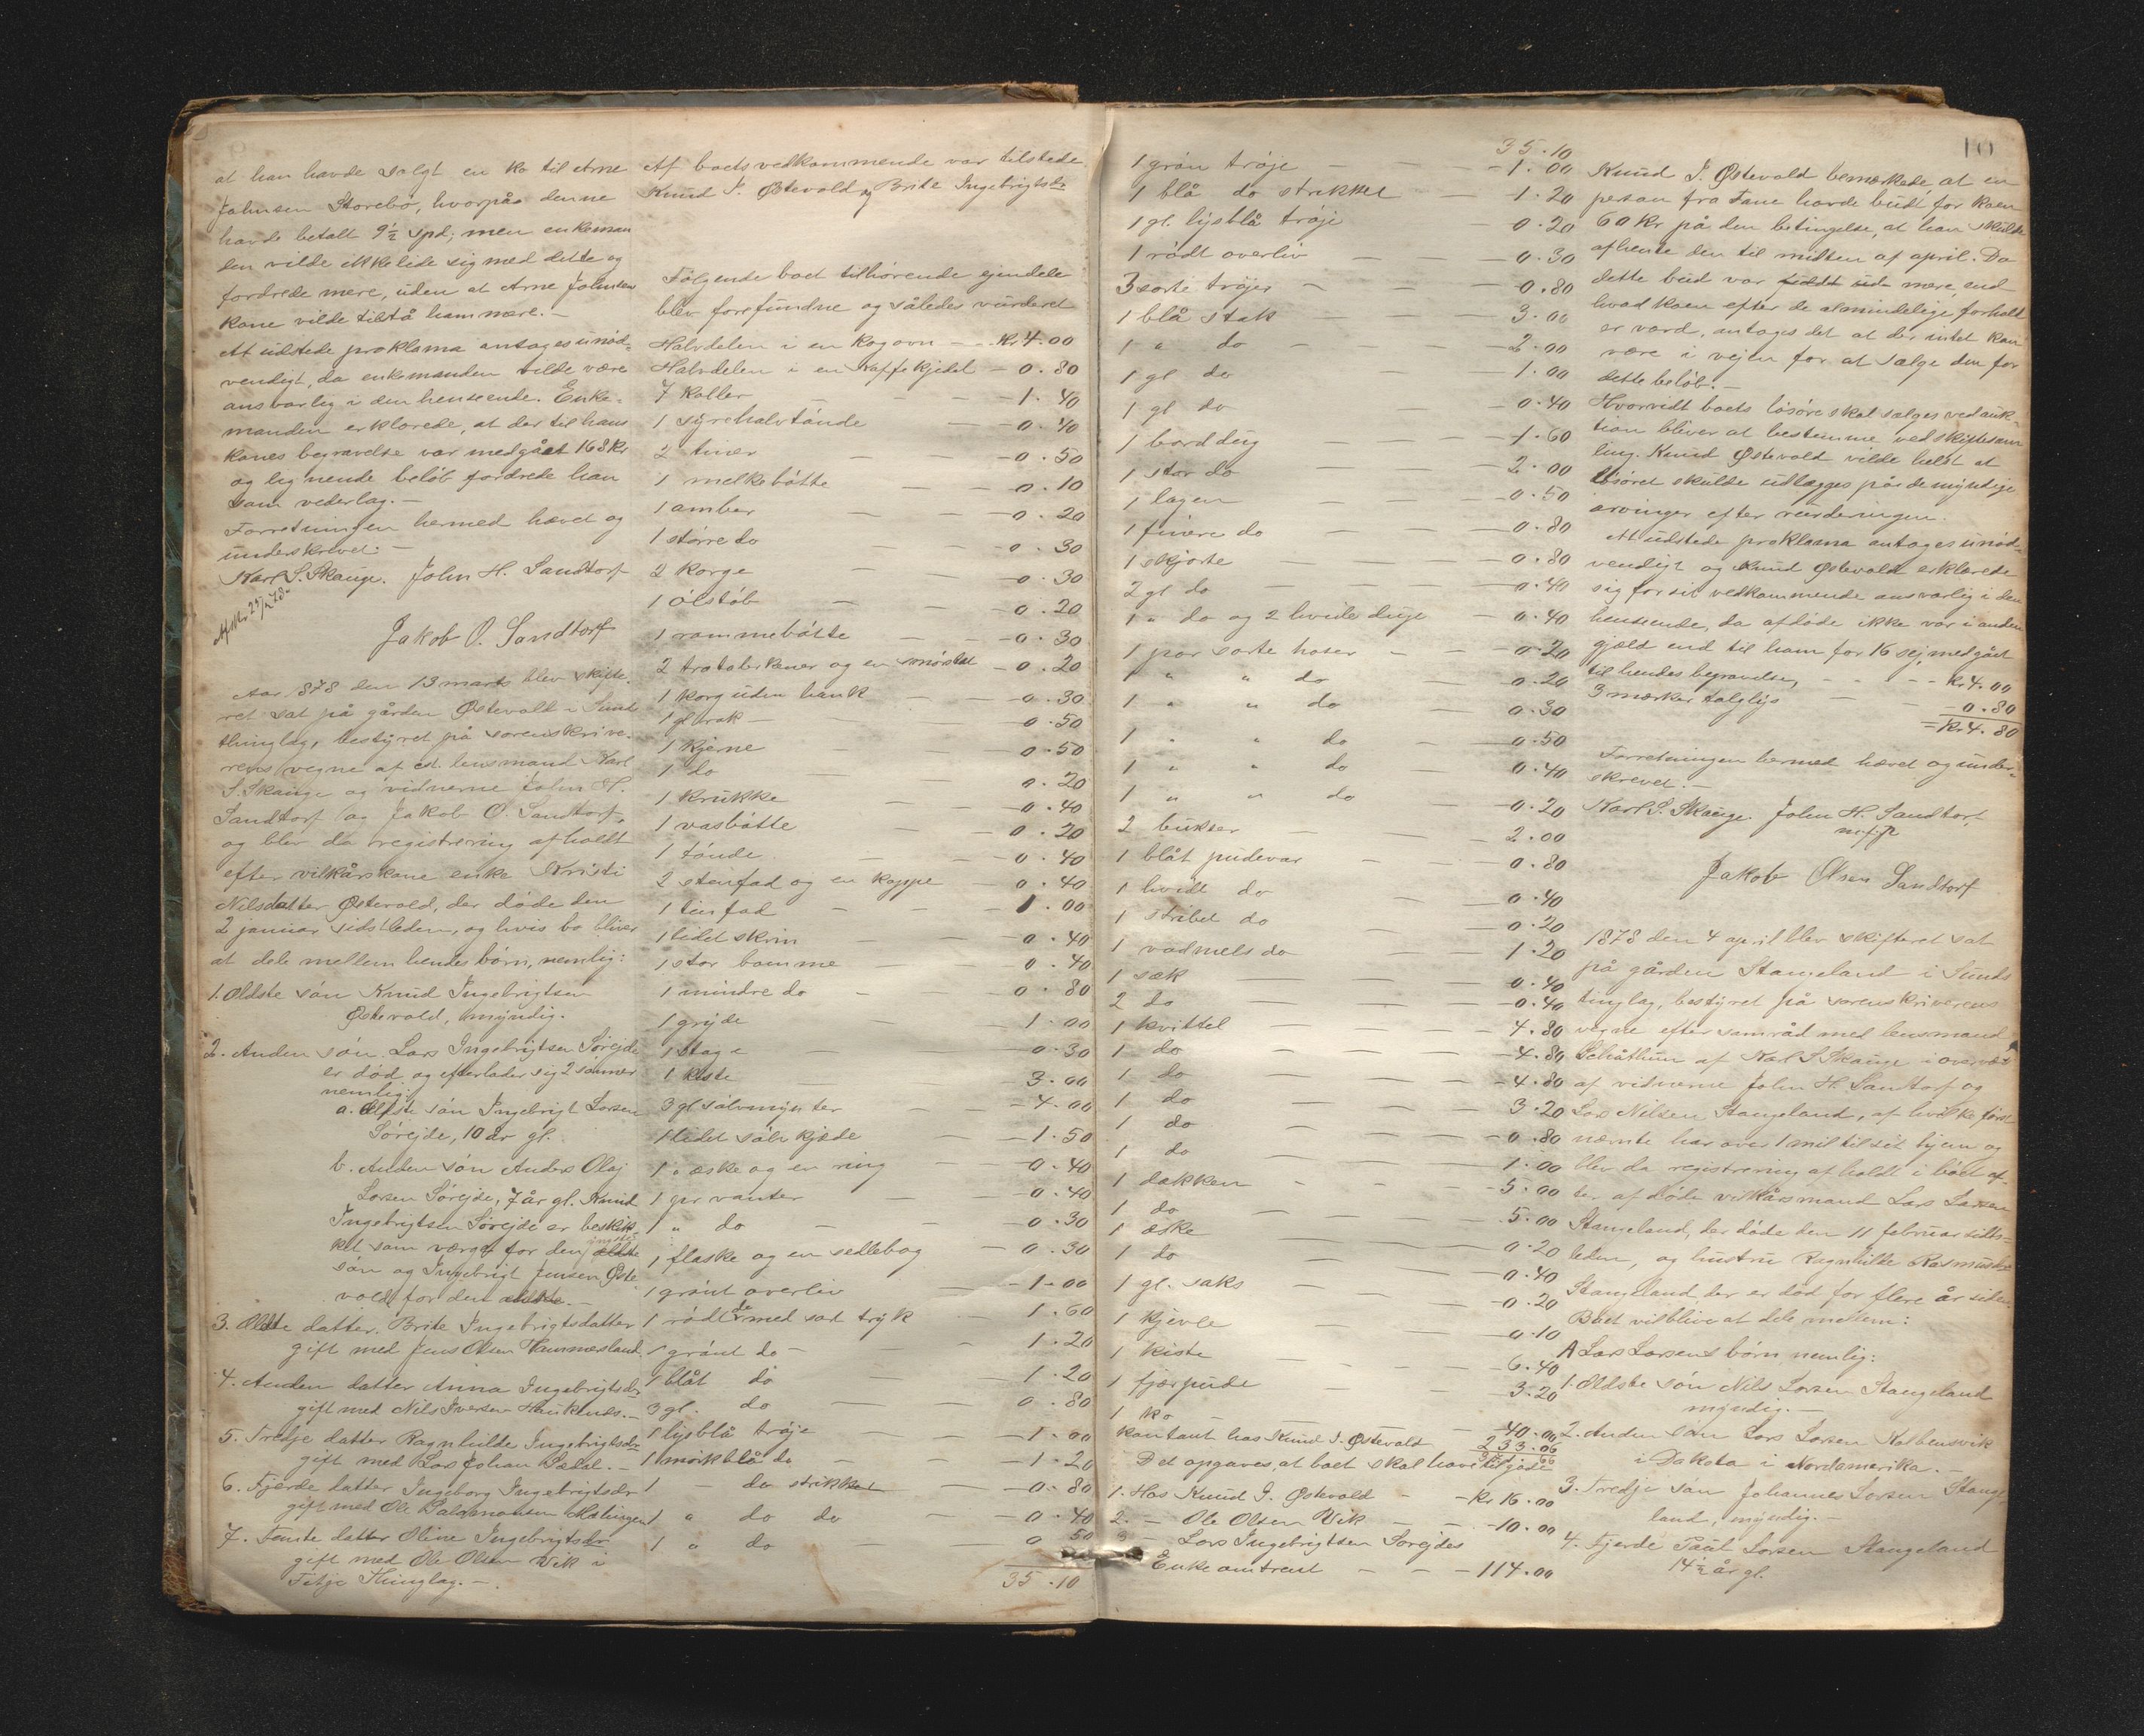 at han havde solgt en ko til Arne
Johnsen Storebø, hvorpå denne
havde betalt 9½ spd; men enkeman
den vilde ikke lide sig med dette og
fordrede mere, uden at Arne Johnsens
kone vilde tilstå ham mere. —
At udstede proklama antages unød-
vendigt, da enkemanden vilde være
ansvarlig i den henseende. Enke-
manden erklærede, at der til hans
kones begravelse var medgået 168 Kr
og lignende beløb fordrede han
som vederlag. —
Forretningen hermed hævet og
underskrevet: —
Karl S. Skauge. John H. Sandtorf
Jakob O. Sandtorf
Aar 1878 den 13 marts blev skifte-
ret sat på gården Østevold i Sund
thinglag, bestyret på sorenskrive-
rens vegne af cst. lensmand Karl
S. Skauge og vidnerne John H.
Sandtorf og Jakob O. Sandtorf,
og blev da registrering afholdt
efter vilkårskone enke Kristi
Nilsdatter Østevold, der døde den
2 januar sidstleden, og hvis bo bliver
at dele mellem hendes børn, nemlig:
1. Ældste søn Knud Ingebrigtsen
Østevold, myndig.
2. Anden søn Lars Ingebrigtsen Sørejde
er død og efterlader sig 2 sønner
nemlig
a. Ældste søn Ingebrigt Larsen
Sørejde, 10 år gl.
b. Anden søn Anders Olaj
Larsen Sørejde, 7 år gl. Knud
Ingebrigtsen Sørejde er beskik
ket som værge for den yngste ældste
søn og Ingebrigt Jensen Øste
vold for den ældste. —
3. Ældste datter Brite Ingebrigtsdatter
gift med Jens Olsen Hammersland.
4. Anden datter Anna Ingebrigtsdr
gift med Nils Iversen Hauknes. —
5. Tredje datter Ragnhilde Ingebrigtsdr
gift med Lars Johan —
6. Fjerde datter Ingeborg Ingebrigtsdr
gift med Ole Salomonsen
7. Femte datter Oline Ingebrigtsdr
gift med Ole Olsen Vik i
Fitje thinglag. —
Af boets vedkommende var tilstede
Knud I. Østevold og Brite Ingebrigtsdr
Følgende boet tilhørende ejendele
blev forefundne og således vurderet
Halvdelen i en Kogovn — Kr 4.00
Halvdelen i en Kaffekjedel — 0.80
7 Koller — 1.40
1 syrehalvtønde — 0.40
2 tiner — 0.50
1 melkebøtte — 0.10
1 ambar — 0.20
1 større do — 0.30
2 Korge — 0.30
1 ølstøb — 0.20
1 rømmebøtte — 0.30
2 trætalerkener og en — 0.20
1 korg uden hank — 0.30
1 gl. rok — 0.50
1 Kjerne — 0.50
1 do — 0.20
1 Krukke — 0.40
1 vasbøtte — 0.20
1 tønde — 0.40
2 stenfad og en koppe — 0.40
1 tinfad — 1.00
1 lidet skrin — 0.40
1 stor bomme — 0.40
1 mindre do — 0.80
1 gryde — 1.00
1 stage — 0.30
1 kiste — 3.00
3 gl sølvmynter — 4.00
1 lidet sølvkjæde — 1.50
1 " æske og en ring — 0.40
1 par vanter — 0.40
1 " do — 0.30
1 flaske og en sedlebog — 0.30
1 grønt overliv — 1.00
1 rødt do med sat tryk — 1.60
1 grønt do — 1.20
1 blåt do — 1.20
3 gl. do — 0.80
1 lysblå trøje — 1.00
1 mørkblå do — 1.20
1 — do strikket — 0.80
1 " do do — 0.40
1 " do — 0.50
35.10
10
35.10
1 grøn trøje — 1.00
1 blå do strikket — 1.20
1 gl. lysblå trøje — 0.20
1 rødt overliv — 0.30
3 sorte trøjer — 0.80
1 blå stak — 3.00
1 " do — 2.00
1 gl do — 1.00
1 gl do — 0.40
1 borddug — 1.60
1 stor do — 2.00
1 lagen — 0.50
1 finere do — 0.80
1 skjorte — 0.80
2 gl do — 0.40
1 " do og 2 hvide duge — 0.40
1 par sorte hoser — 0.20
1 " " do — 0.20
1 " " do — 0.30
1 " " do — 0.50
1 " " do — 0.40
1 " " do — 0.20
2 bukser — 2.00
1 blåt pudevar — 0.80
1 hvidt do — 0.40
1 stribet do — 0.20
1 vadmels do — 1.20
1 sæk — 0.40
2 do — 0.40
1 kvittel — 4.80
1 do — 4.80
1 do — 4.80
1 do — 3.20
1 do — 0.80
1 do — 1.00
1 dakken — 5.00
1 do — 5.00
1 æske — 0.20
1 do — 0.40
1 gl. saks — 0.20
1 kjevle — 0.10
1 kiste — 6.40
1 fjærpude — 3.20
1 ko — 40.00
Kontant hos Knud I. Østevold 233.06
Det opgaves, at boet skal have tilgode
1. Hos Knud I. Østevold — Kr 16.00
2. — Ole Olsen Vik — 10.00
3 — Lars Ingebrigtsen Sørejdes
Enke omtrent — 114.00
Knud I. Østevold bemærkede, at en
person fra Fane havde budt for koen
60 Kr på den betingelse, at han skulde
afhente den til midten af april. Da
dette bud var mere, end
hvad koen efter de almindelige forhold
er værd, antages det at der intet kan
være i vejen for at sælge den for
dette beløb. —
Hvorvidt boets løsøre skal sælges ved auk-
tion bliver at bestemme ved skiftesam
ling. Knud Østevold vilde helst at
løsøret skulde udlægges på de myndige
arvinger efter vurderingen.
At udstede proklama antages unød-
vendigt og Knud Østevold erklærede
sig for sit vedkommende ansvarlig i den
henseende, da afdøde ikke var i anden
gjæld end til ham for 16 sej, medgået
til hendes begravelse, — Kr. 4.00
3 mærker talglys — 0.80
= Kr. 4.80
Forretningen hermed hævet og under-
skrevet. —
Karl S. Skauge. John H. Sandtorf
m.f.p
Jakob Olsen Sandtorf
1878 den 4 april blev skifteret sat
på gården Stangeland i Sunds
tinglag, bestyret på sorenskriverens
vegne efter samråd med lensmand
Schåthun af Karl S Skauge i overvær
af vidnerne John H. Sandtorf og
Lars Nilsen Stangeland, af hvilke først
nævnte har over 1 mil til sit hjem og
blev da registrering afholdt i boet ef-
ter afdøde vilkårsmand Lars Larsen
Stangeland, der døde den 11 februar sidst-
leden, og hustru Ragnhilde Rasmusdr
Stangeland der er død for flere år siden.
Boet vil blive at dele mellem:
A Lars Larsens børn, nemlig:
1. Ældste søn Nils Larsen Stangeland
myndig. —
2. Anden søn Lars Larsen Kolbensvik
i Dakota i Nordamerika. —
3. Tredje søn Johannes Larsen Stange-
land, myndig. —
4. Fjerde Paul Larsen Stangeland
14½ år gl.